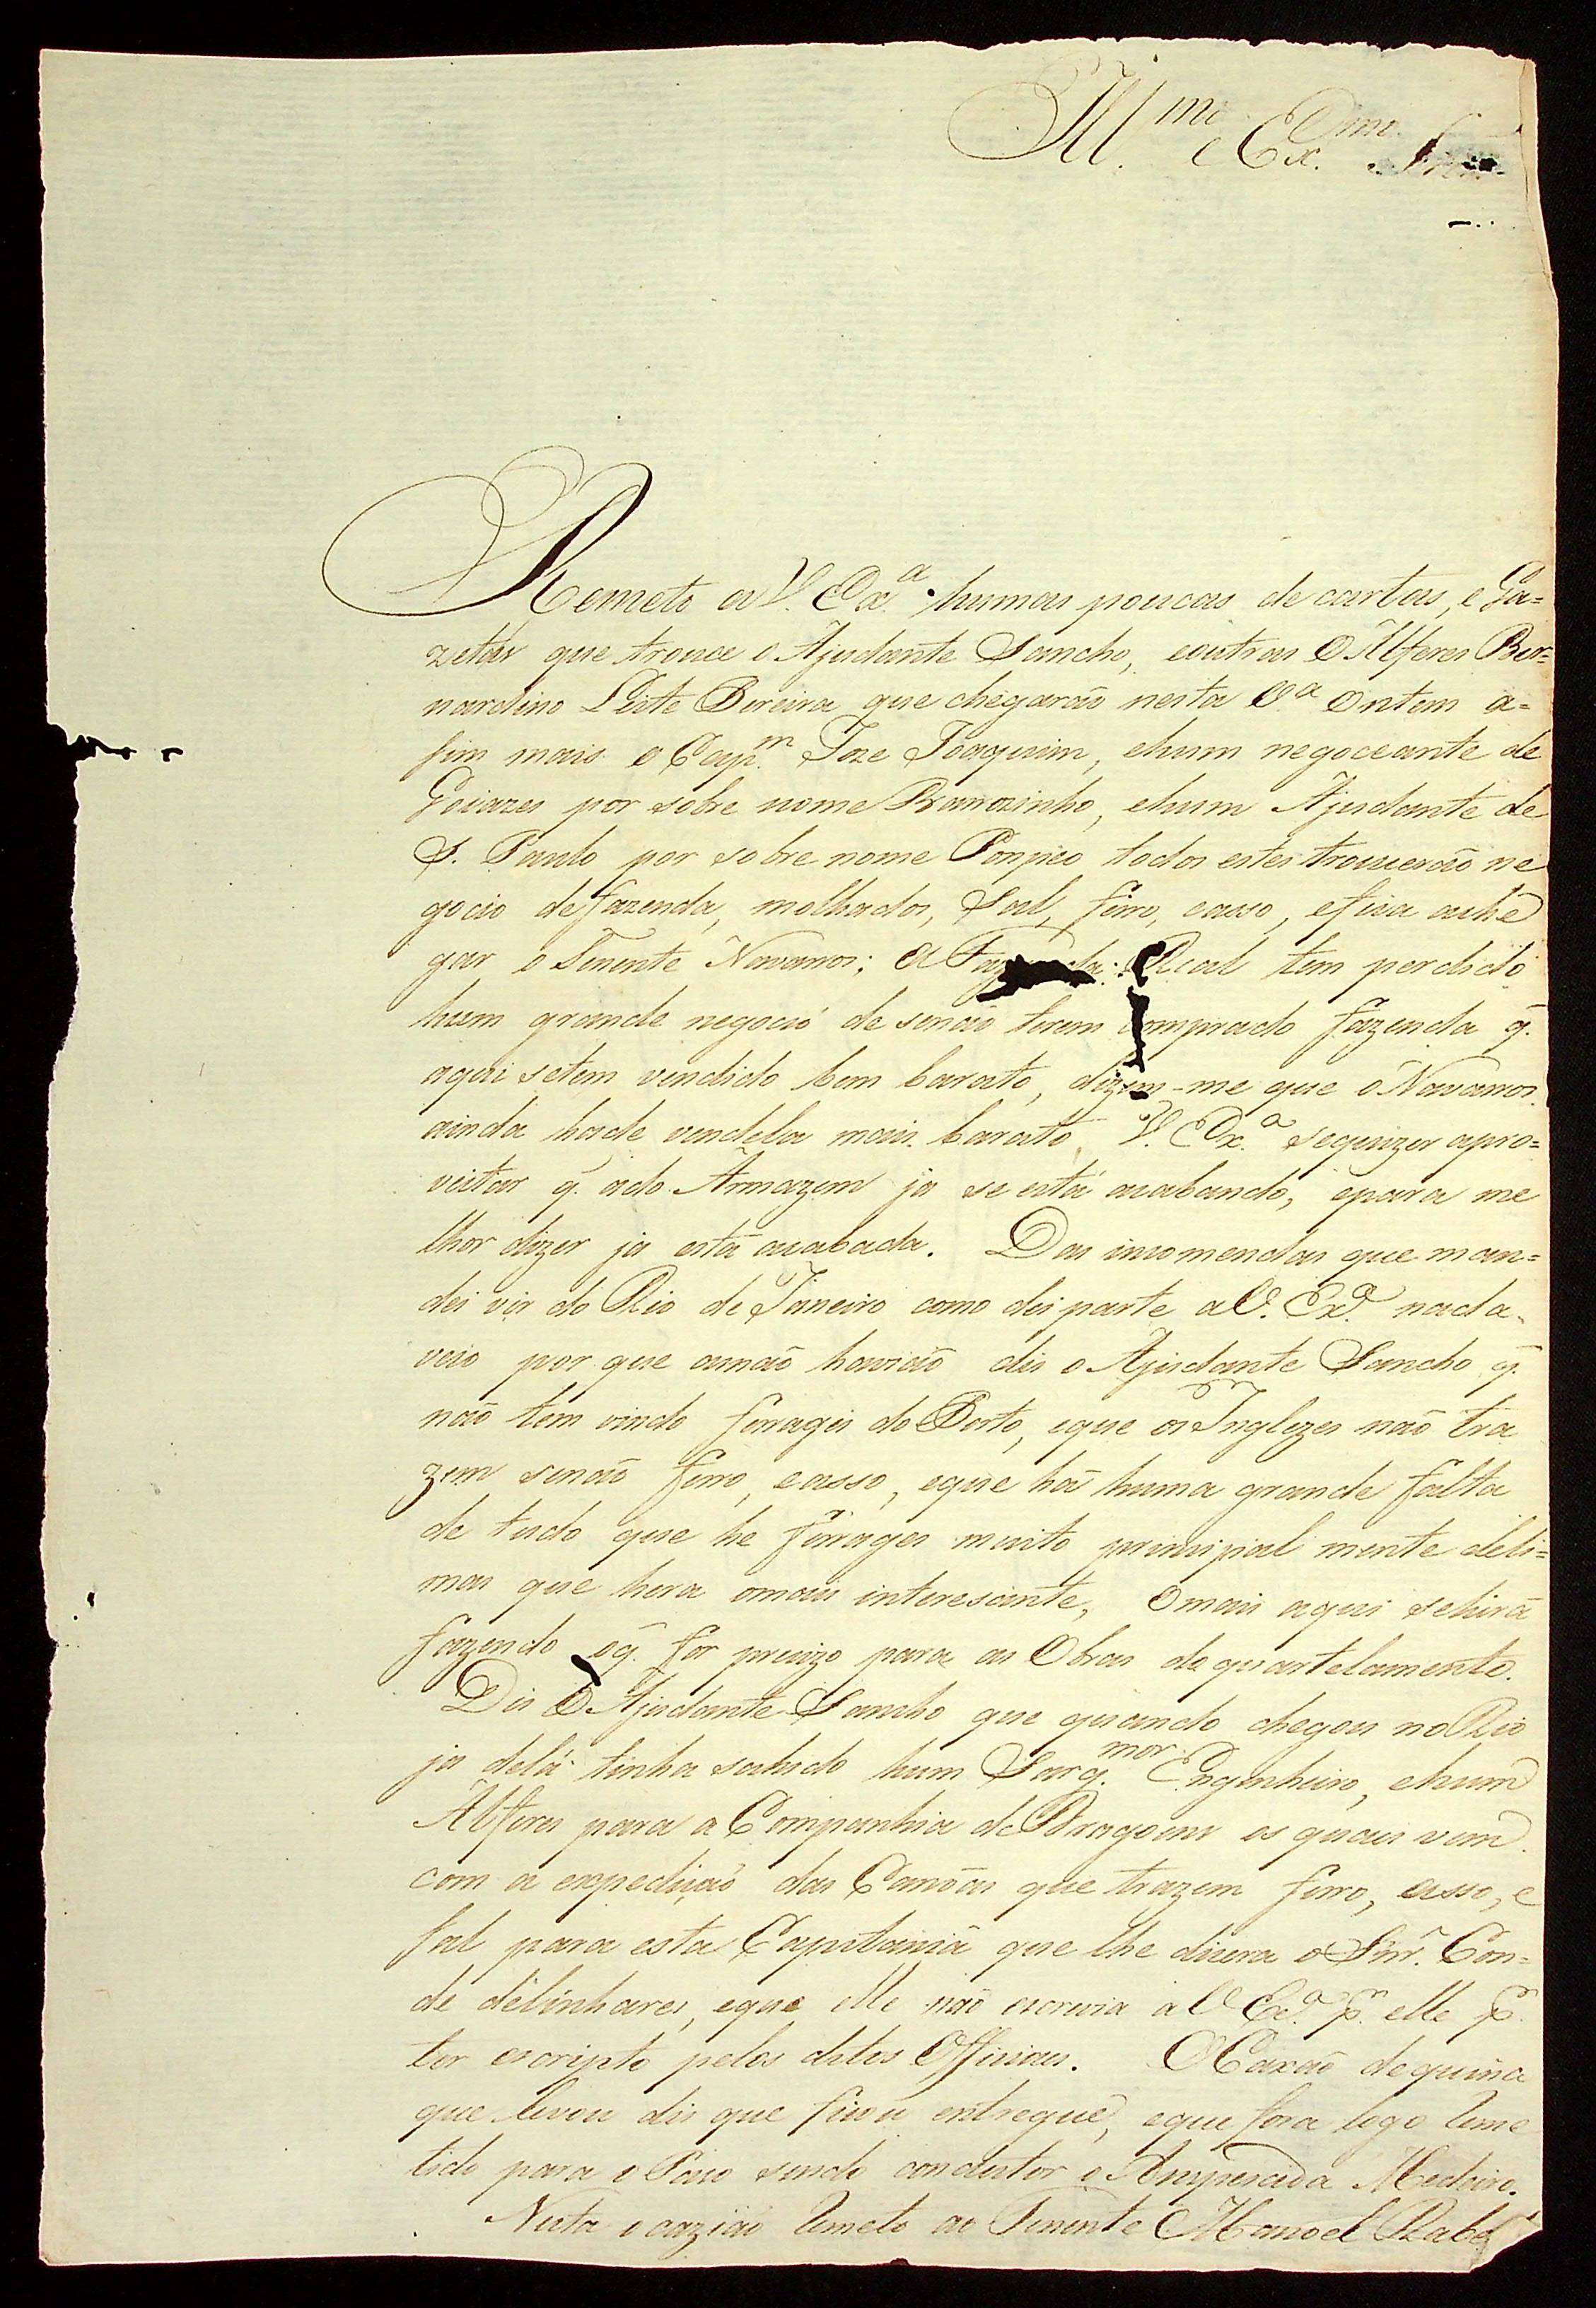 Ill.mo e Ex.mo Snr.
Remeto a V. Ex.a humas poucas de cartas, e Ga=
zetas que trouce o Ajudante Sancho, eoutras O Alferes Ber=
nardino Leite Pereira que chegarão nesta V.a Ontem a=
sim mais o Cap.m Joze Joaquim, ehum negoceante de
Goiazes por sobre nome Ramozinho, ehum Ajudante de
S. Paulo por sobre nome Pompeo todos estes trouxerão ne
gocio de fazenda, molhados, Sal, ferro, easso, efica aché
gar o Tenente Navarros; A Fazenda Real tem perdido
hum grande negoció de senão terem comprado fazenda q̃.
aqui setem vendido bem barato, dizem-me que o Navarros
ainda hade vendela mais barato, V. Ex.a sequizer apro=
veitar q̃. ado Armazem ja se está acabando, epara me
lhor dizer ja está acabada. Das incomendas que man=
dei vir do Rio de Janeiro como dei parte a V. Ex.a nada
veio por que anão havião dis o Ajudante Sancho q̃.
não tem vindo ferrages do Porto, eque os Inglezes não tra
zem senão ferro, easso, eque há huma grande falta
de tudo que he ferrages muito principal mente deli=
mas que hera omais interesante, Omais aqui sehirá
fazendo oq̃. for precizo para as Obras de quartelamento.
Dis O Ajudante Sancho que quando chegou no Rio
ja delá tinha sahido hum Sarg.mor Engenheiro, ehum
Alferes para a Companhia de Dragoens os quais vem
com a expedição das Canôas que trazem ferro, asso, e
sal para esta Capitania que lhe dicera o Snr. Con=
de deLinhares, eque elle não escrevia a V. Ex.a p.r elle p.r
ter escripto pelos ditos Officiais. O Caxão dequina
que levou dis que ficou entregue, eque fora logo Reme
tido para o Paço sendo condutor o Anspesada Medeiro.
Nesta ocazião Remeto ao Tenente Manoel Rabel